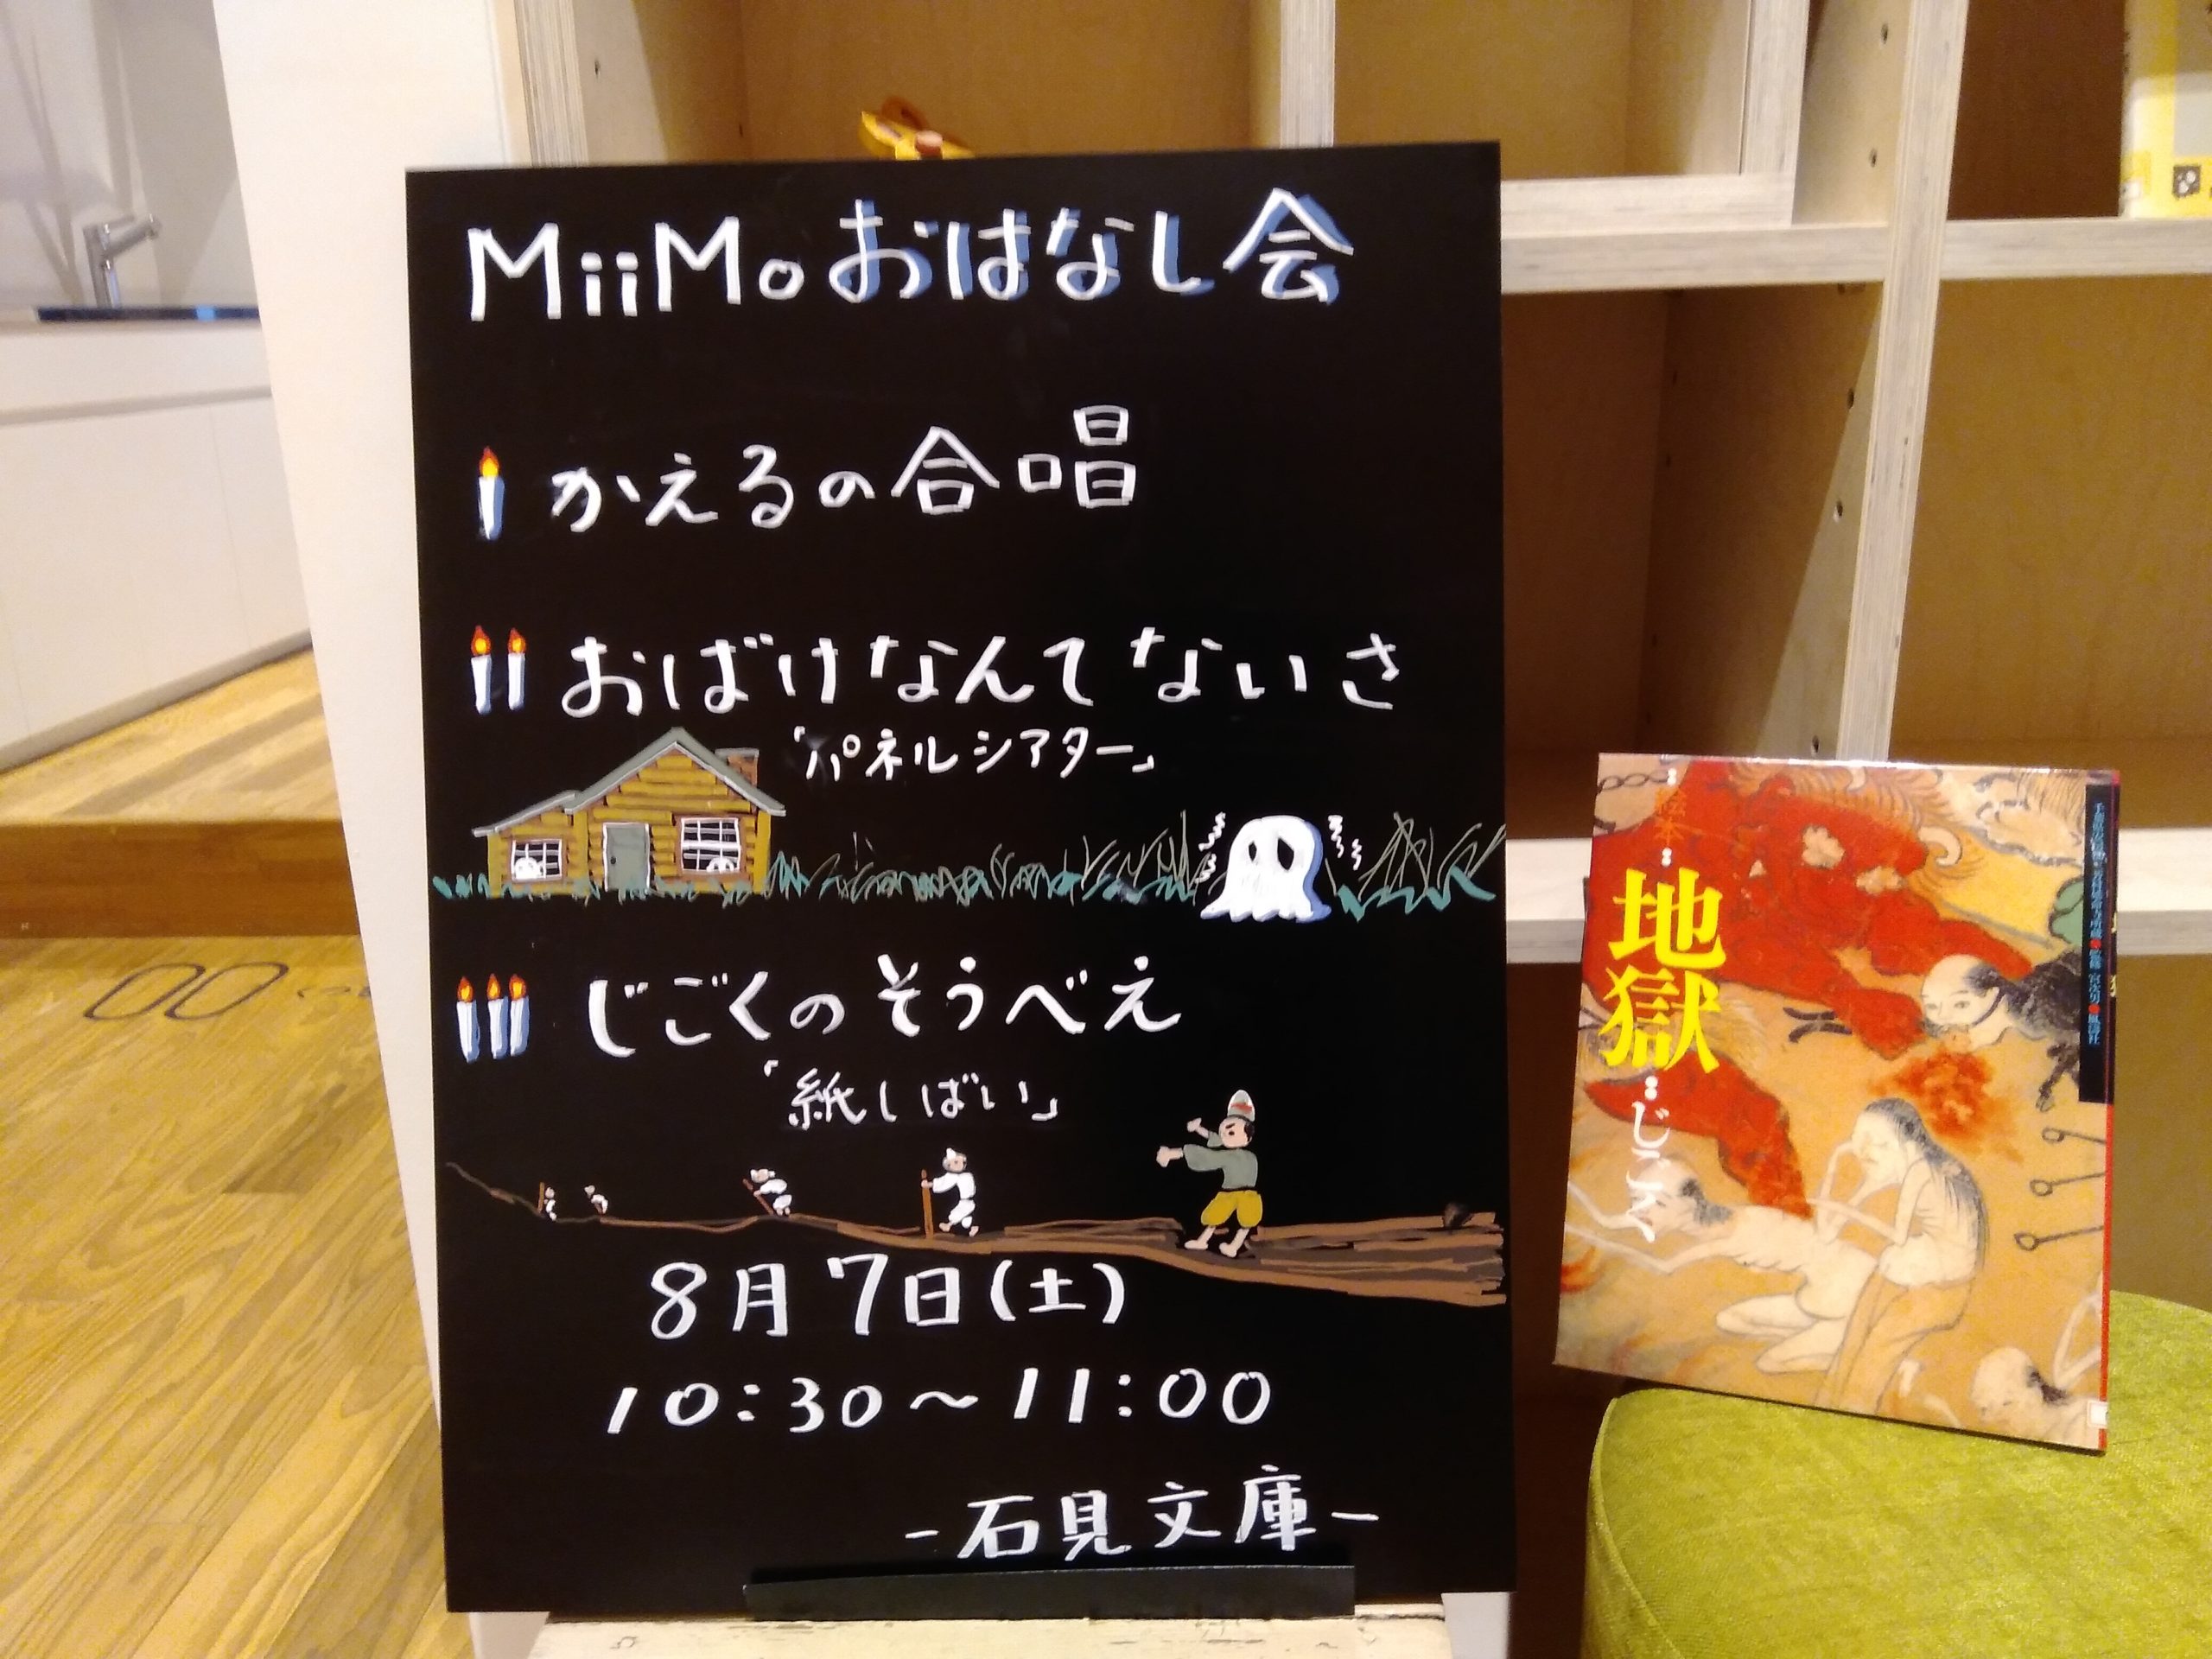 MiiMoおはなし会
かえるの合唱
おばけなんてないさ
「パネルシアター」
じごくのそうべえ
「紙しばい」
8月7日(土)
10:30～11:00
-石見文庫-
絵本
地獄
じごく